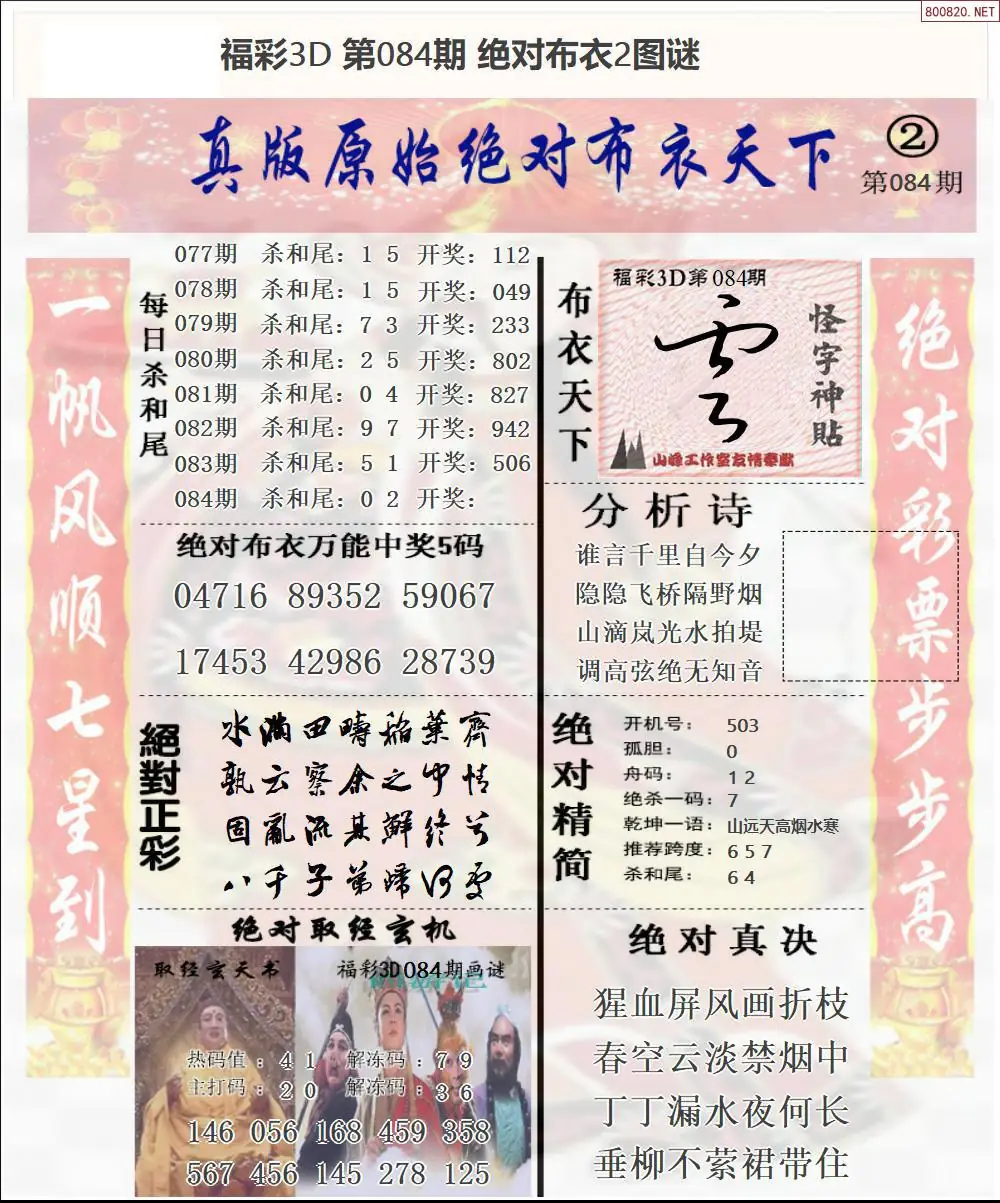 800820.NET
福彩3D 第084期 绝对布衣2图谜
真版原始绝对布衣天下
②
第084期
一帆风顺七星到
每日杀和尾
077期 杀和尾：1 5 开奖：112
078期 杀和尾：1 5 开奖：049
079期 杀和尾：7 3 开奖：233
080期 杀和尾：2 5 开奖：802
081期 杀和尾：0 4 开奖：827
082期 杀和尾：9 7 开奖：942
083期 杀和尾：5 1 开奖：506
084期 杀和尾：0 2 开奖：
绝对布衣万能中奖5码
04716 89352 59067
17453 42986 28739
絕對正彩
水满田疇稻葉齊
孰云察余之中情
固亂流其鮮终兮
八千子弟歸何處
绝对取经玄机
取经玄天书
福彩3D084期画谜
热码值：4 1 解冻码：7 9
主打码：2 0 解冻码：3 6
146 056 168 459 358
567 456 145 278 125
布衣天下
福彩3D第084期
怪字神貼
山峰工作室友情奉献
分析诗
谁言千里自今夕
隐隐飞桥隔野烟
山滴岚光水拍堤
调高弦绝无知音
绝对精简
开机号：503
孤胆：0
舟码：1 2
绝杀一码：7
乾坤一语：山远天高烟水寒
推荐跨度：6 5 7
杀和尾：6 4
绝对真决
猩血屏风画折枝
春空云淡禁烟中
丁丁漏水夜何长
垂柳不萦裙带住
绝对彩票步步高